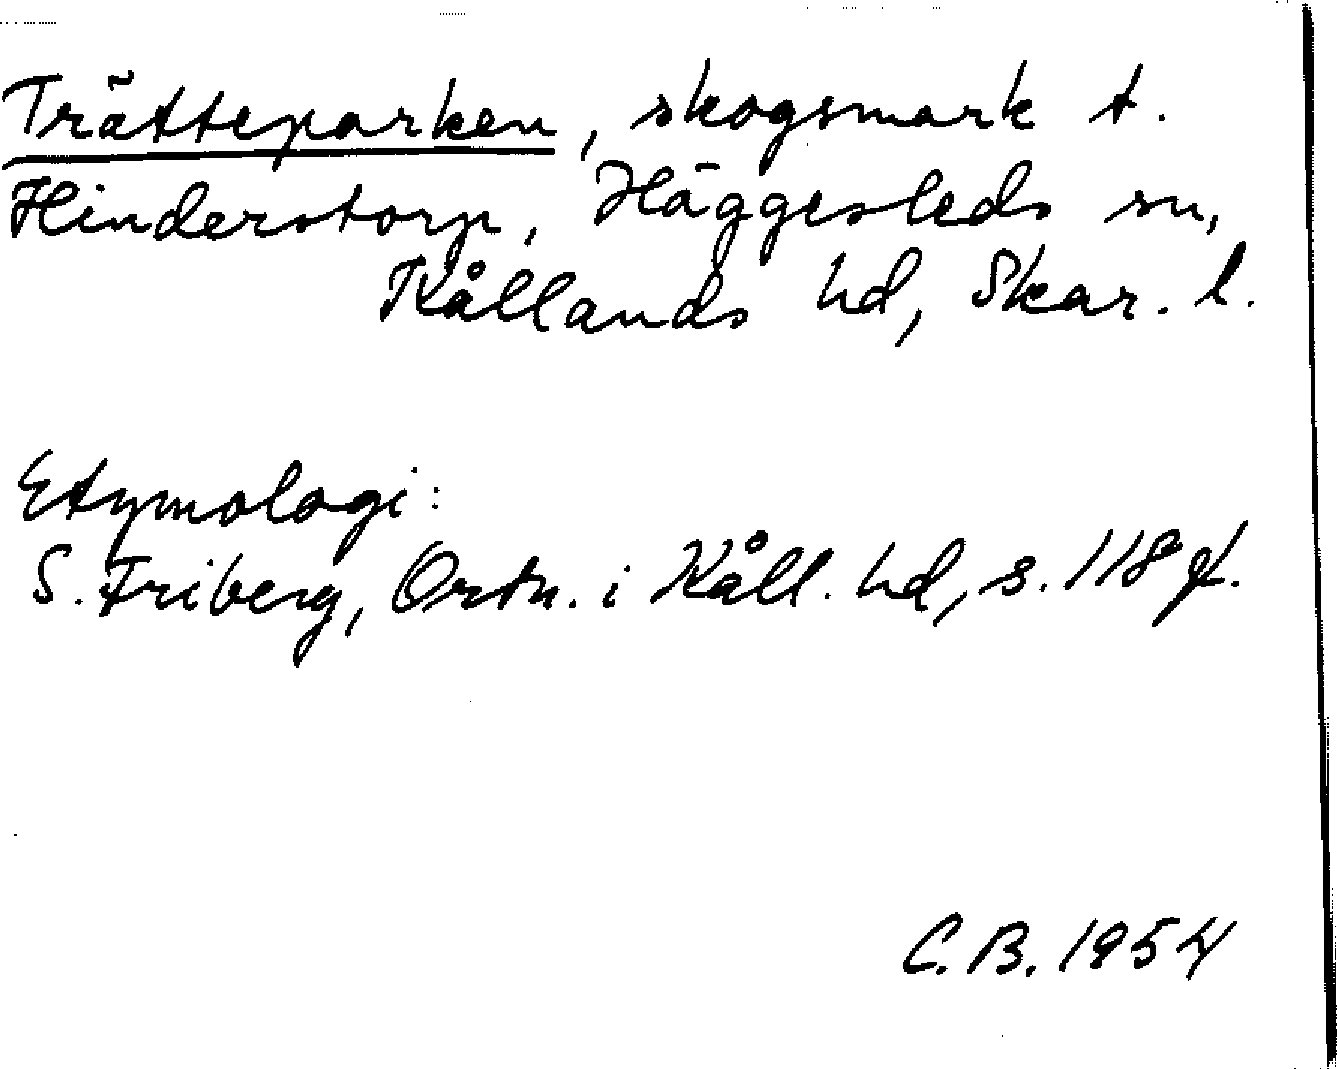 Trätteparken, skogsmark t.
Hinderstorp, Häggesleds sn,
Kållands hd, Skar. l.
Etymologi:
S. Friberg, Ortn. i Kåll. hd, s. 118 f.
C.B. 1954